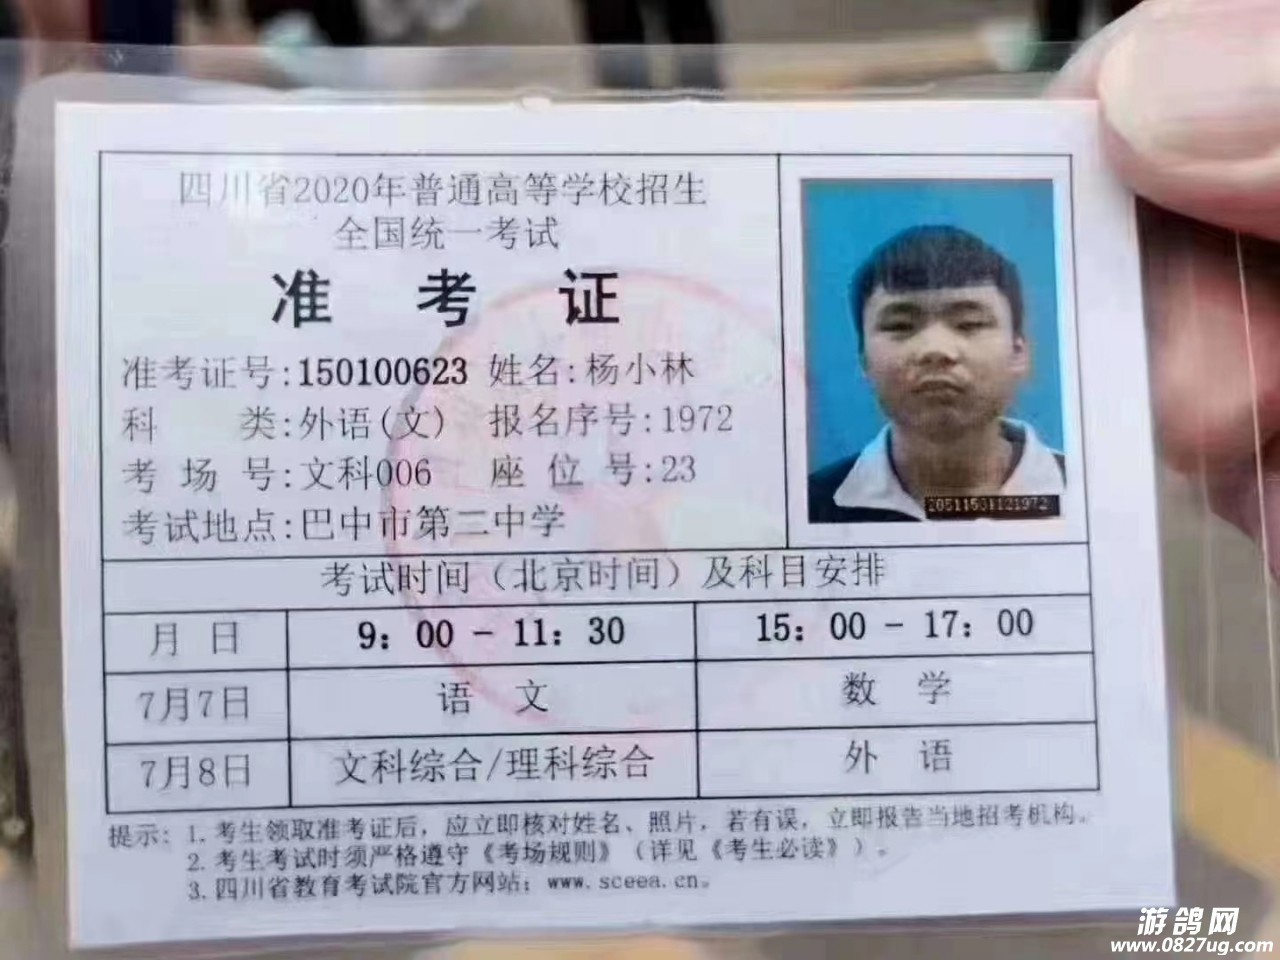 四川省2020年普通高等学校招生
全国统一考试
准 考 证
准考证号:150100623 姓名:杨小林
科 类:外语(文) 报名序号:1972
考 场 号:文科006 座 位 号:23
考试地点:巴中市第二中学
20511501121972
考试时间（北京时间）及科目安排
月 日 9：00 - 11：30 15：00 - 17：00
7月7日 语 文 数 学
7月8日 文科综合/理科综合 外 语
提示：1. 考生领取准考证后，应立即核对姓名、照片，若有误，立即报告当地招考机构。
2. 考生考试时须严格遵守《考场规则》（详见《考生必读》）。
3. 四川省教育考试院官方网站：www.sceea.cn。
游鸽网
www.0827ug.com